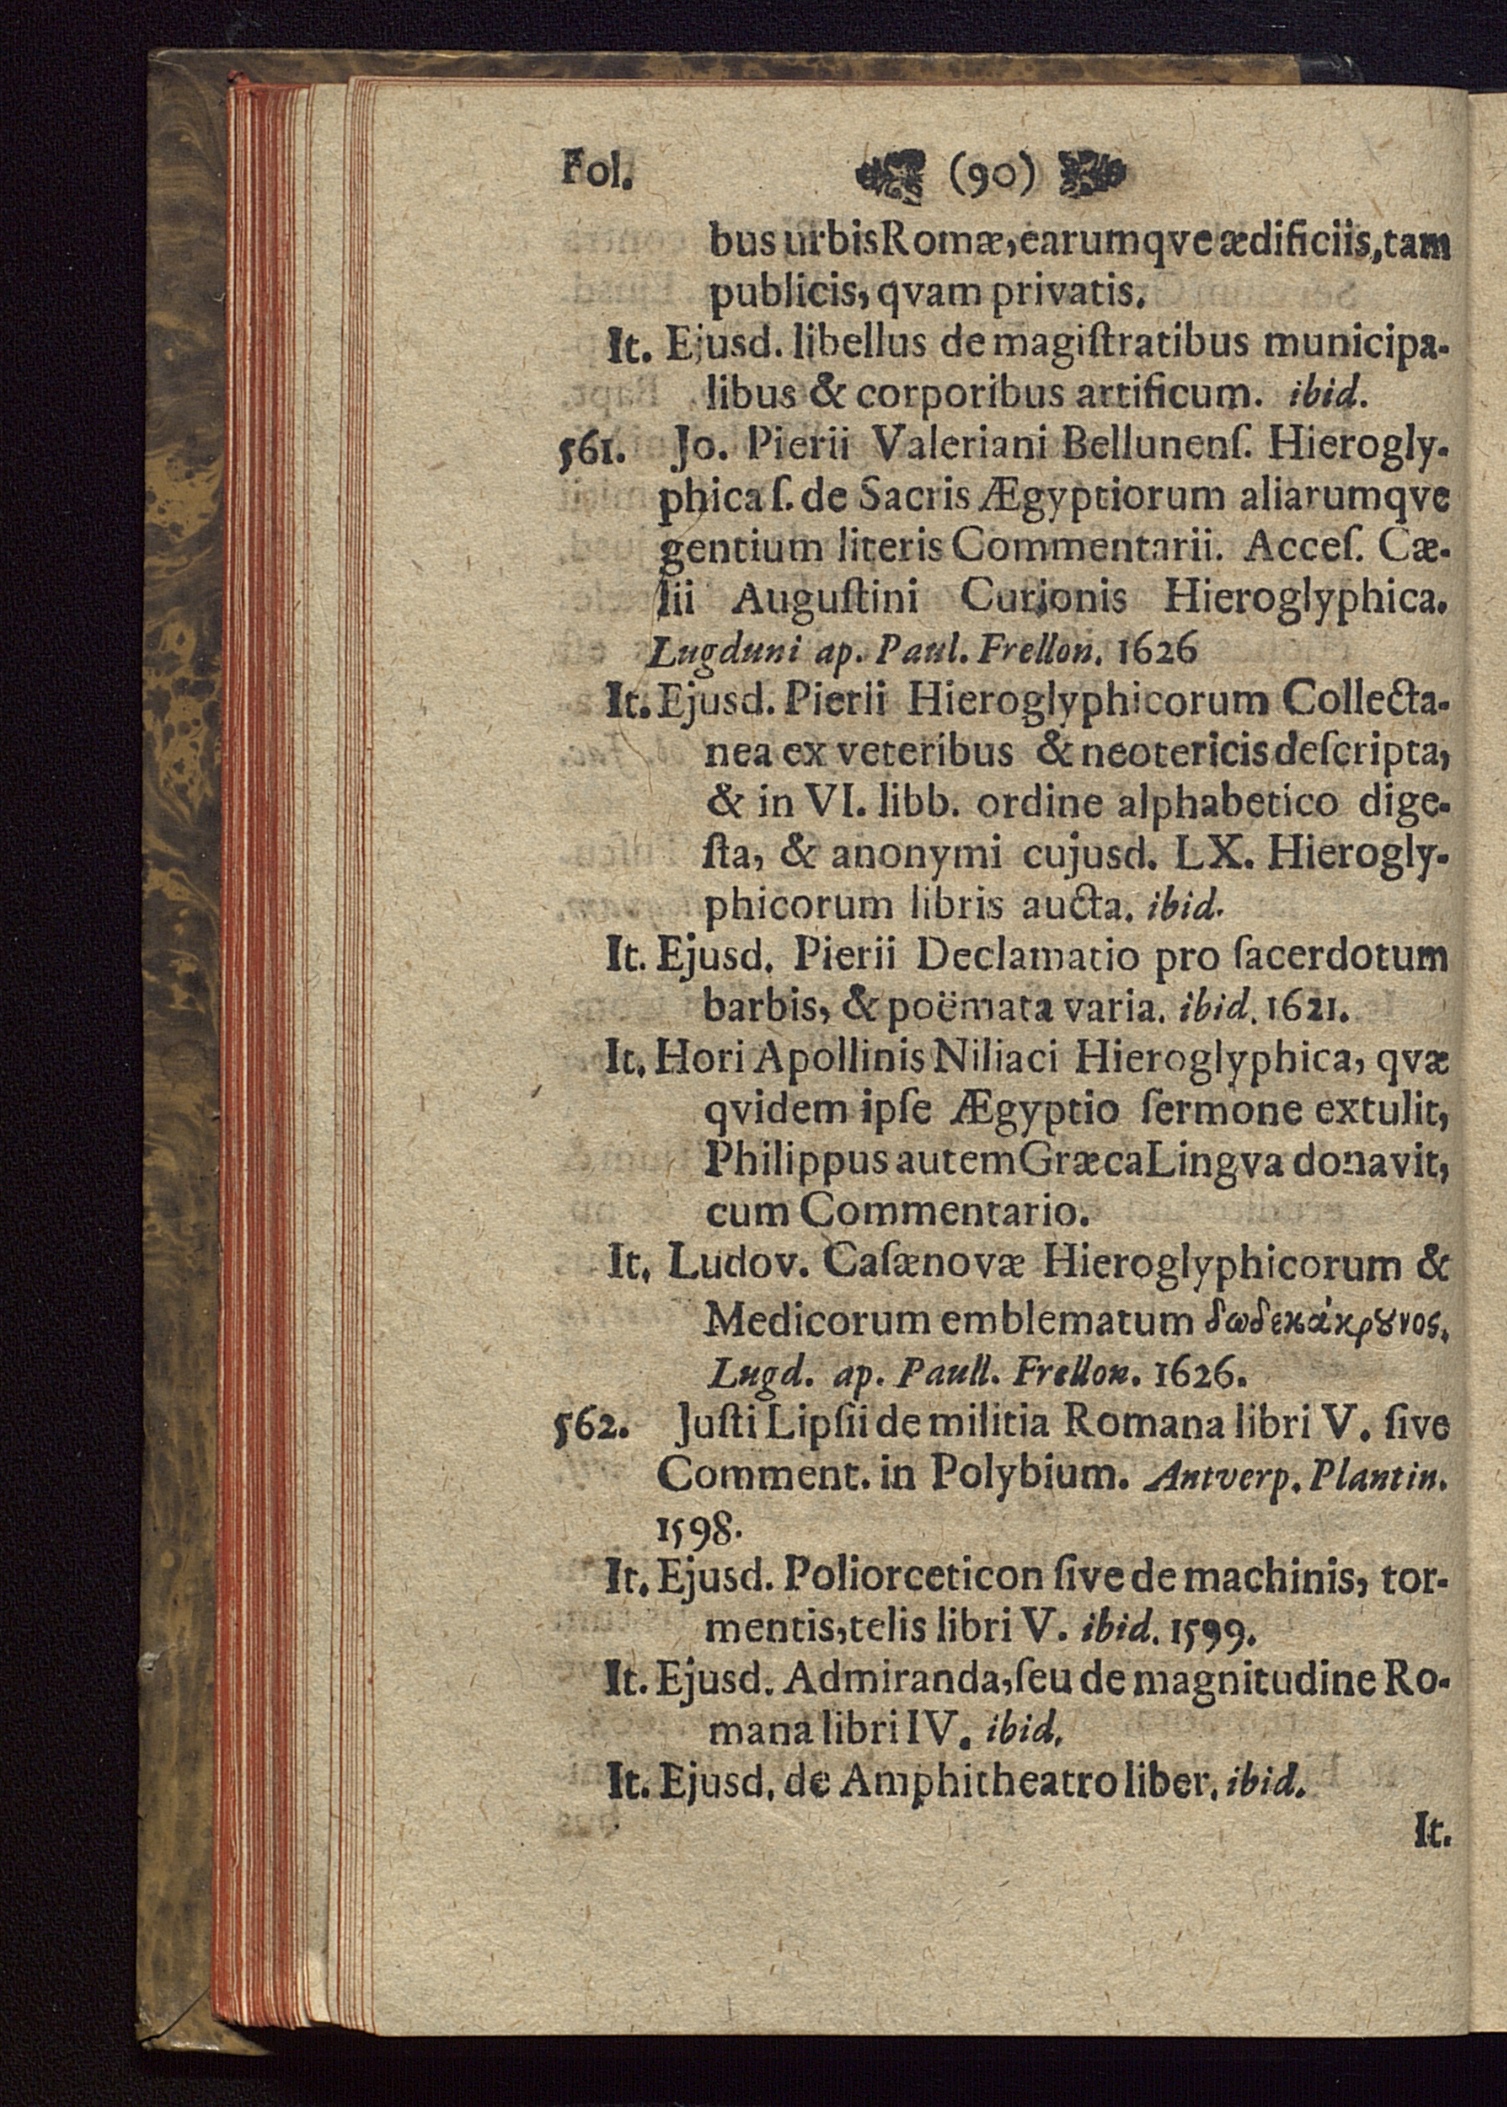 Fol. (90)
bus urbis Romæ, earumqve ædificiis, tam
publicis, qvam privatis.
It. Ejusd. libellus de magiſtratibus municipa-
libus & corporibus artificum. ibid.
561. Jo. Pierii Valeriani Bellunenſ. Hierogly-
phica ſ. de Sacris Ægyptiorum aliarumqve
gentium literis Commentarii. Acceſ. Cæ-
lii Auguſtini Curionis Hieroglyphica.
Lugduni ap. Paul. Frellon. 1626
It. Ejusd. Pierii Hieroglyphicorum Collecta-
nea ex veteribus & neotericis deſcripta,
& in VI. libb. ordine alphabetico dige-
ſta, & anonymi cujusd. LX. Hierogly-
phicorum libris aucta. ibid.
It. Ejusd. Pierii Declamatio pro ſacerdotum
barbis, & poëmata varia. ibid. 1621.
It. Hori Apollinis Niliaci Hieroglyphica, qvæ
qvidem ipſe Ægyptio ſermone extulit,
Philippus autem Græca Lingva donavit,
cum Commentario.
It. Ludov. Caſænovæ Hieroglyphicorum &
Medicorum emblematum δωδεκάκρȣνος.
Lugd. ap. Paull. Frellon. 1626.
562. Juſti Lipſii de militia Romana libri V. ſive
Comment. in Polybium. Antverp. Plantin.
1598.
It. Ejusd. Poliorceticon ſive de machinis, tor-
mentis, telis libri V. ibid. 1599.
It. Ejusd. Admiranda, ſeu de magnitudine Ro-
mana libri IV. ibid.
It. Ejusd. de Amphitheatro liber. ibid.
It.